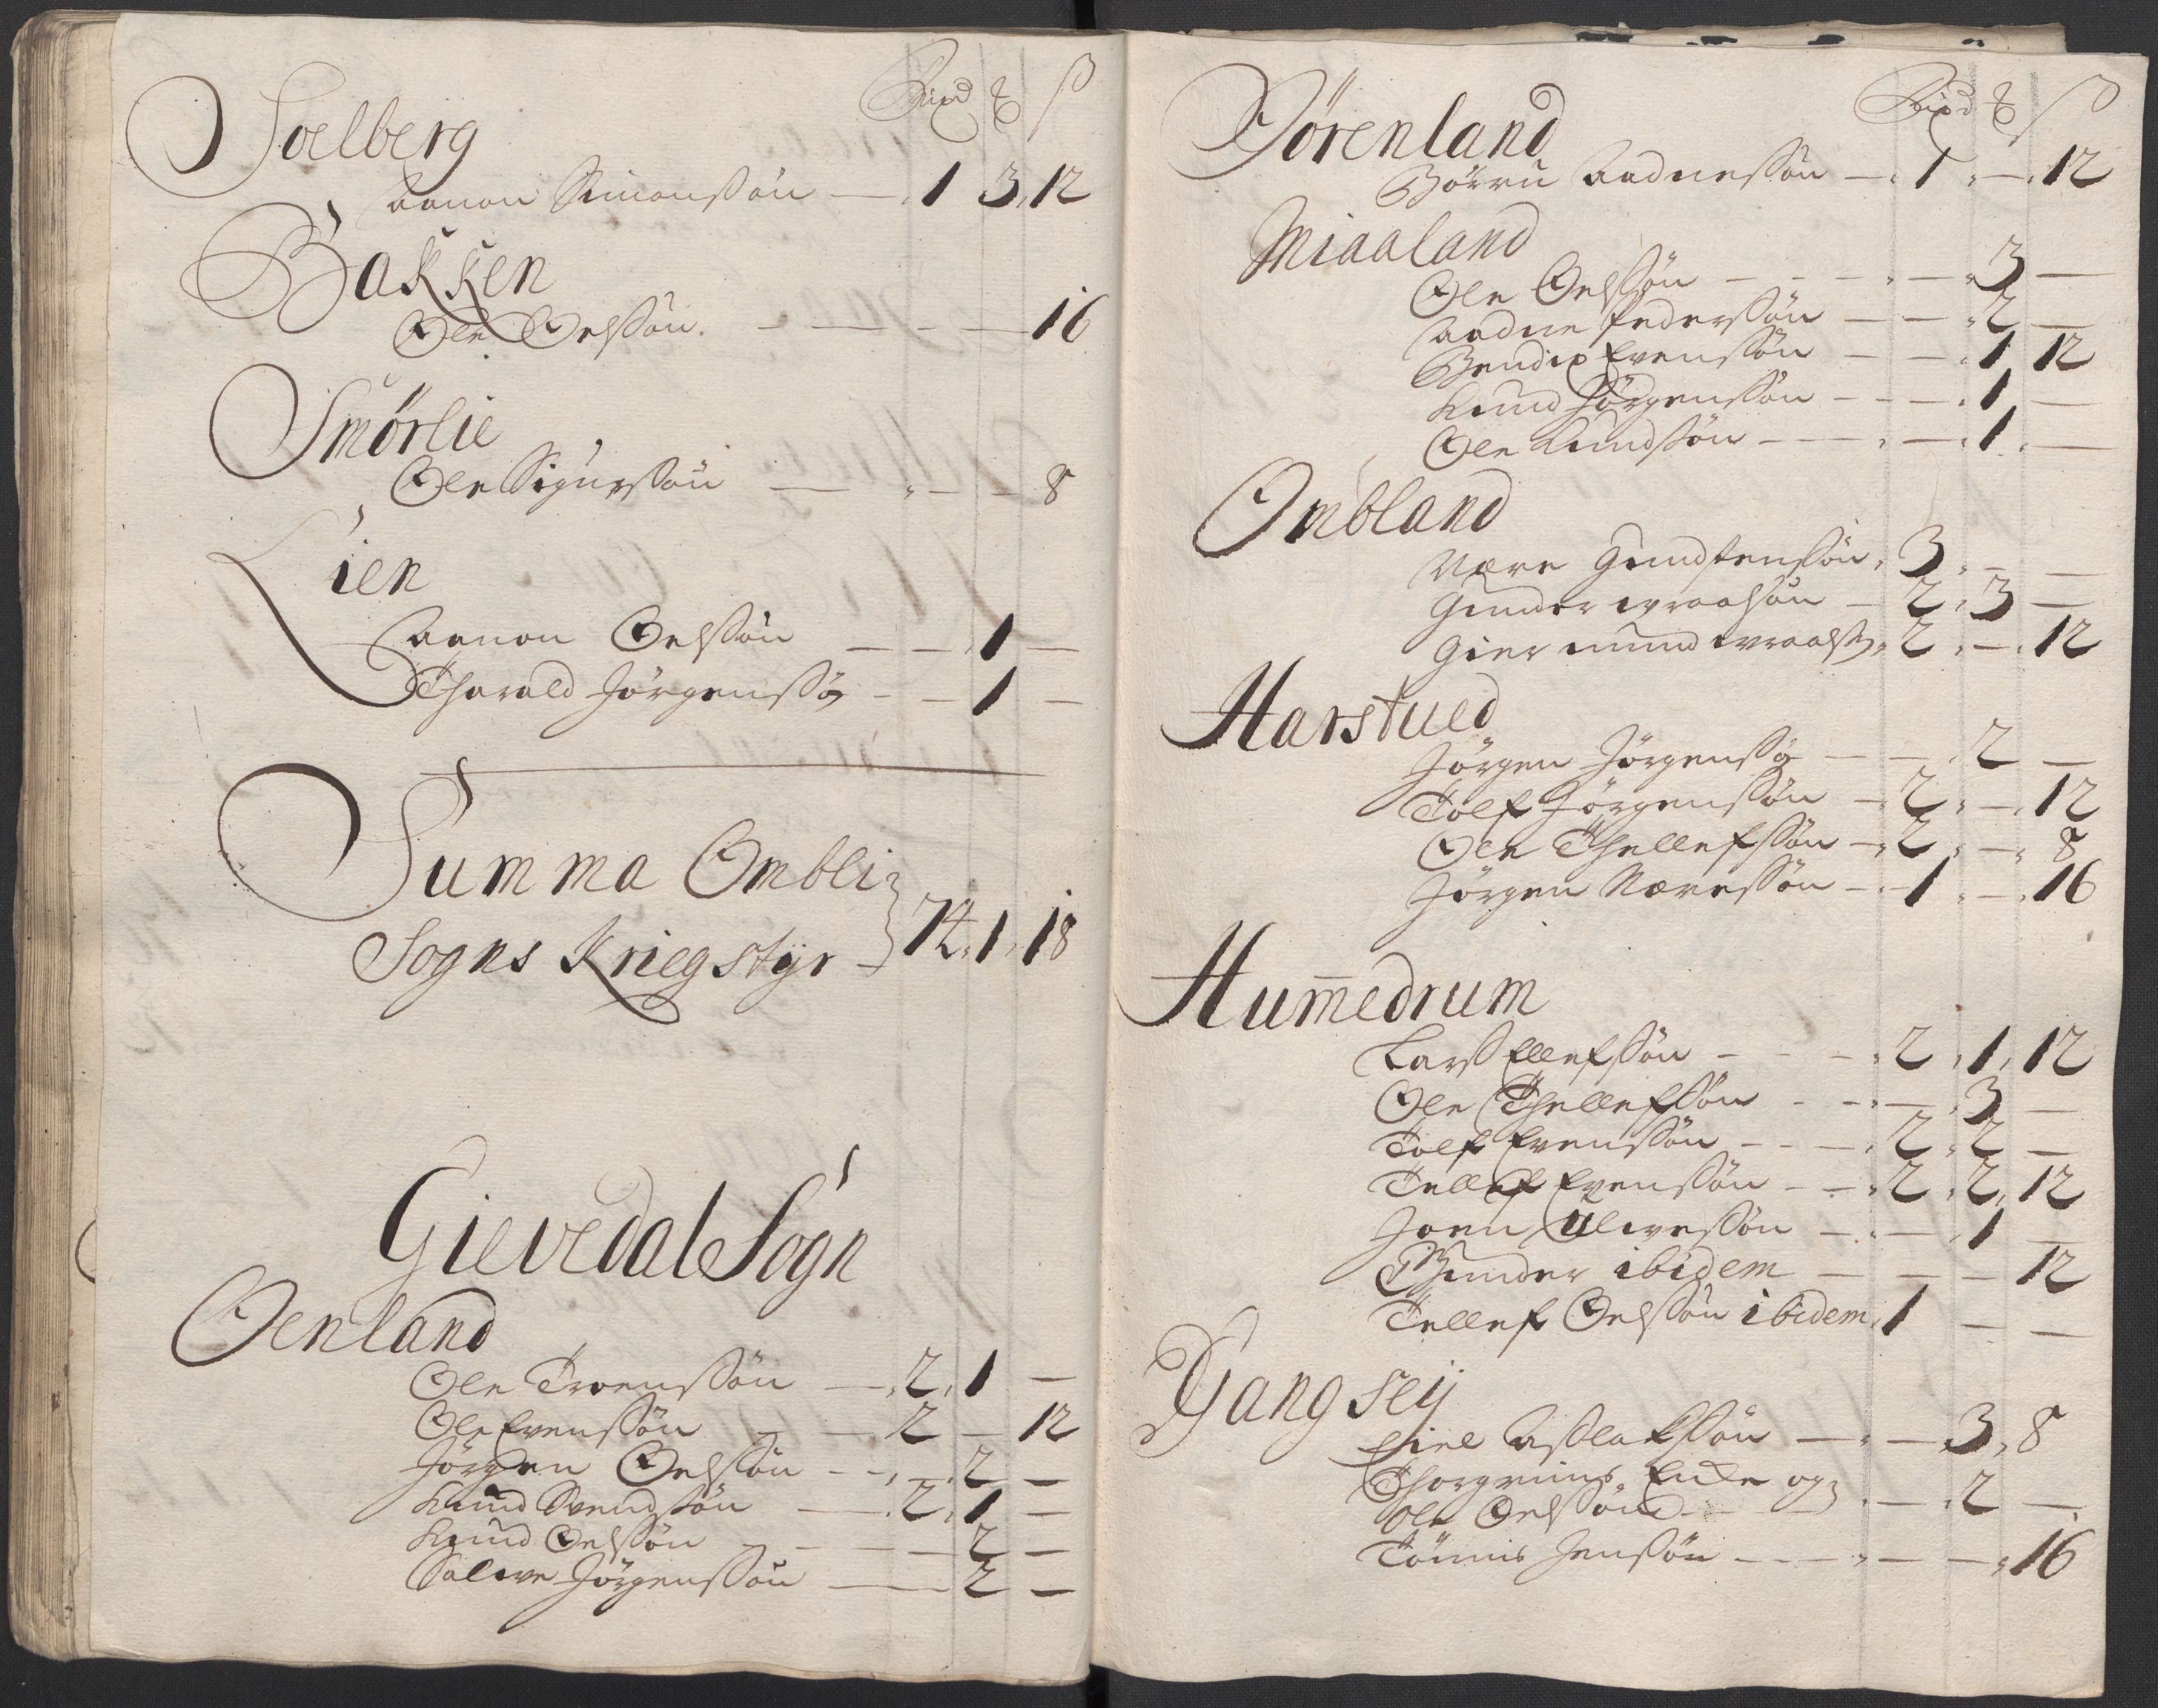 Rixd ß
Soelberg
Aanon Simonssøn — 1 3 12
Bakken
Ole Oelssøn. — — — 16
Smørlie
Ole Sigurssøn — — — 8
Lien
Aanon Oelssøn — — 1 —
Tharald Jørgenssø — — 1 —
Summa Ombli
Sogns Kriegstyr 74 1 18
Gievedal Sogn
Oenland
Ole Troenssøn — 2 1 —
Ole Evenssøn — 2 — 12
Jørgen Oelssøn — — 2 —
Knud Svendsøn — 2 1 —
Knud Oelssøn — — 2 —
Salwe Jørgenssøn — 2 —
Rixd ß
Børenland
Børru Aadnessøn — 1 — 12
Miaaland
Ole Oelssøn — — 3 —
Aadne Pederssøn — — 2 —
Bendix Evenssøn — — 1 12
Knud Jørgenssøn — — 1 —
Ole Knudssøn — — 1 —
Ombland
Nære Gundstenssøn 3 — —
Gunder wraalsøn — 2 3 —
Giermund wraalss 2 — 12
Harstued
Jørgen Jørgenssø — — 2 —
Tolf Jørgenssøn — 2 — 12
Ole Thellefssøn — 2 — 8
Jørgen Næressøn — 1 — 16
Hum̅edrum
Lars Ellefssøn — — 2 1 12
Ole Thellefssøn — — 3 —
Tolf Evenssøn — — 2 2 —
Tellef Evenssøn — — 2 2 12
Joen Olwessøn — — 1 —
Gunder ibidem — — — 12
Tellef Oelssøn ibidem 1 — —
Gangseij
Eiel Aslakssøn — — 3 8
Thorgrims Encke og
Ole Oelssøn — — 2 —
Tønnis Jenssøn — — — 16